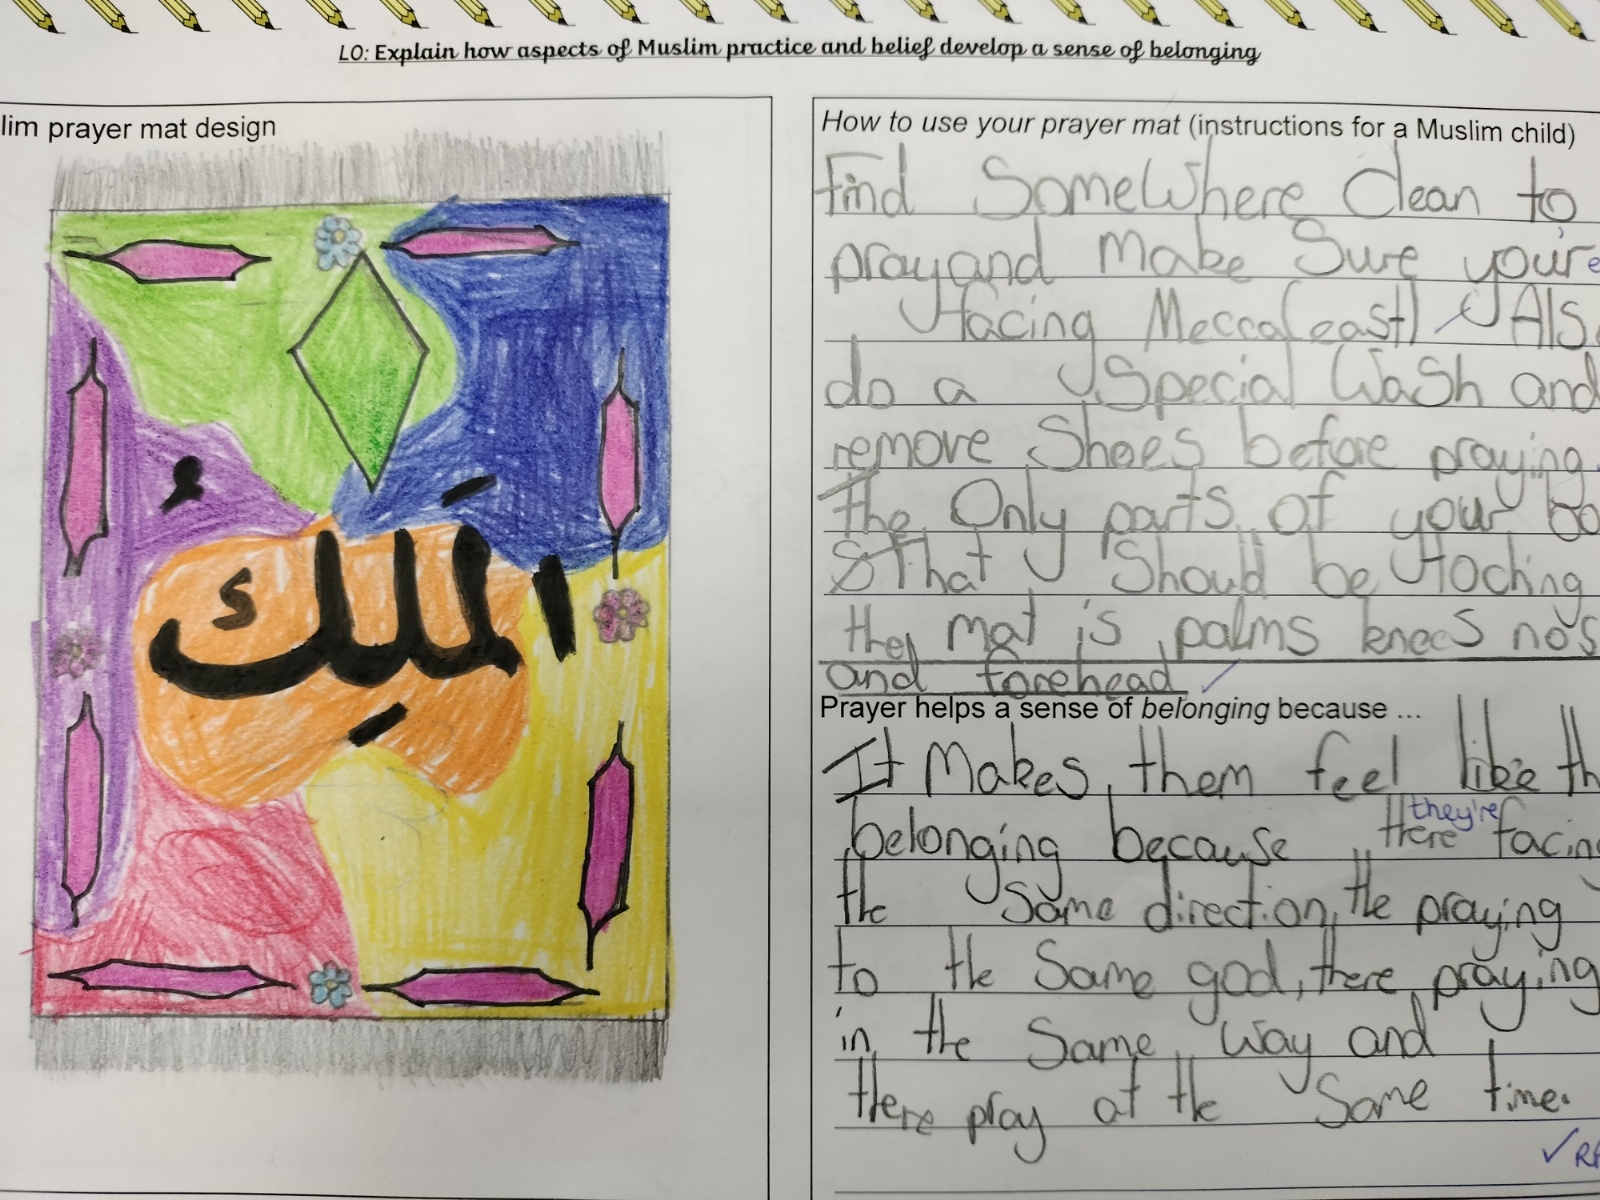 LO: Explain how aspects of Muslim practice and belief develop a sense of belonging
lim prayer mat design
الْمَلِكُ
How to use your prayer mat (instructions for a Muslim child)
Find somewhere clean to
pray and make sure your'e
facing Mecca(east) Als
do a special wash and
remove shoes before praying.
The only parts of your bo
that should be toching
the mat is palms knees nos
and forehead
Prayer helps a sense of belonging because ...
It makes them feel like th
belonging because there facing
they're
the same direction, the praying
to the same god, there praying
in the same way and
there pray at the same time.